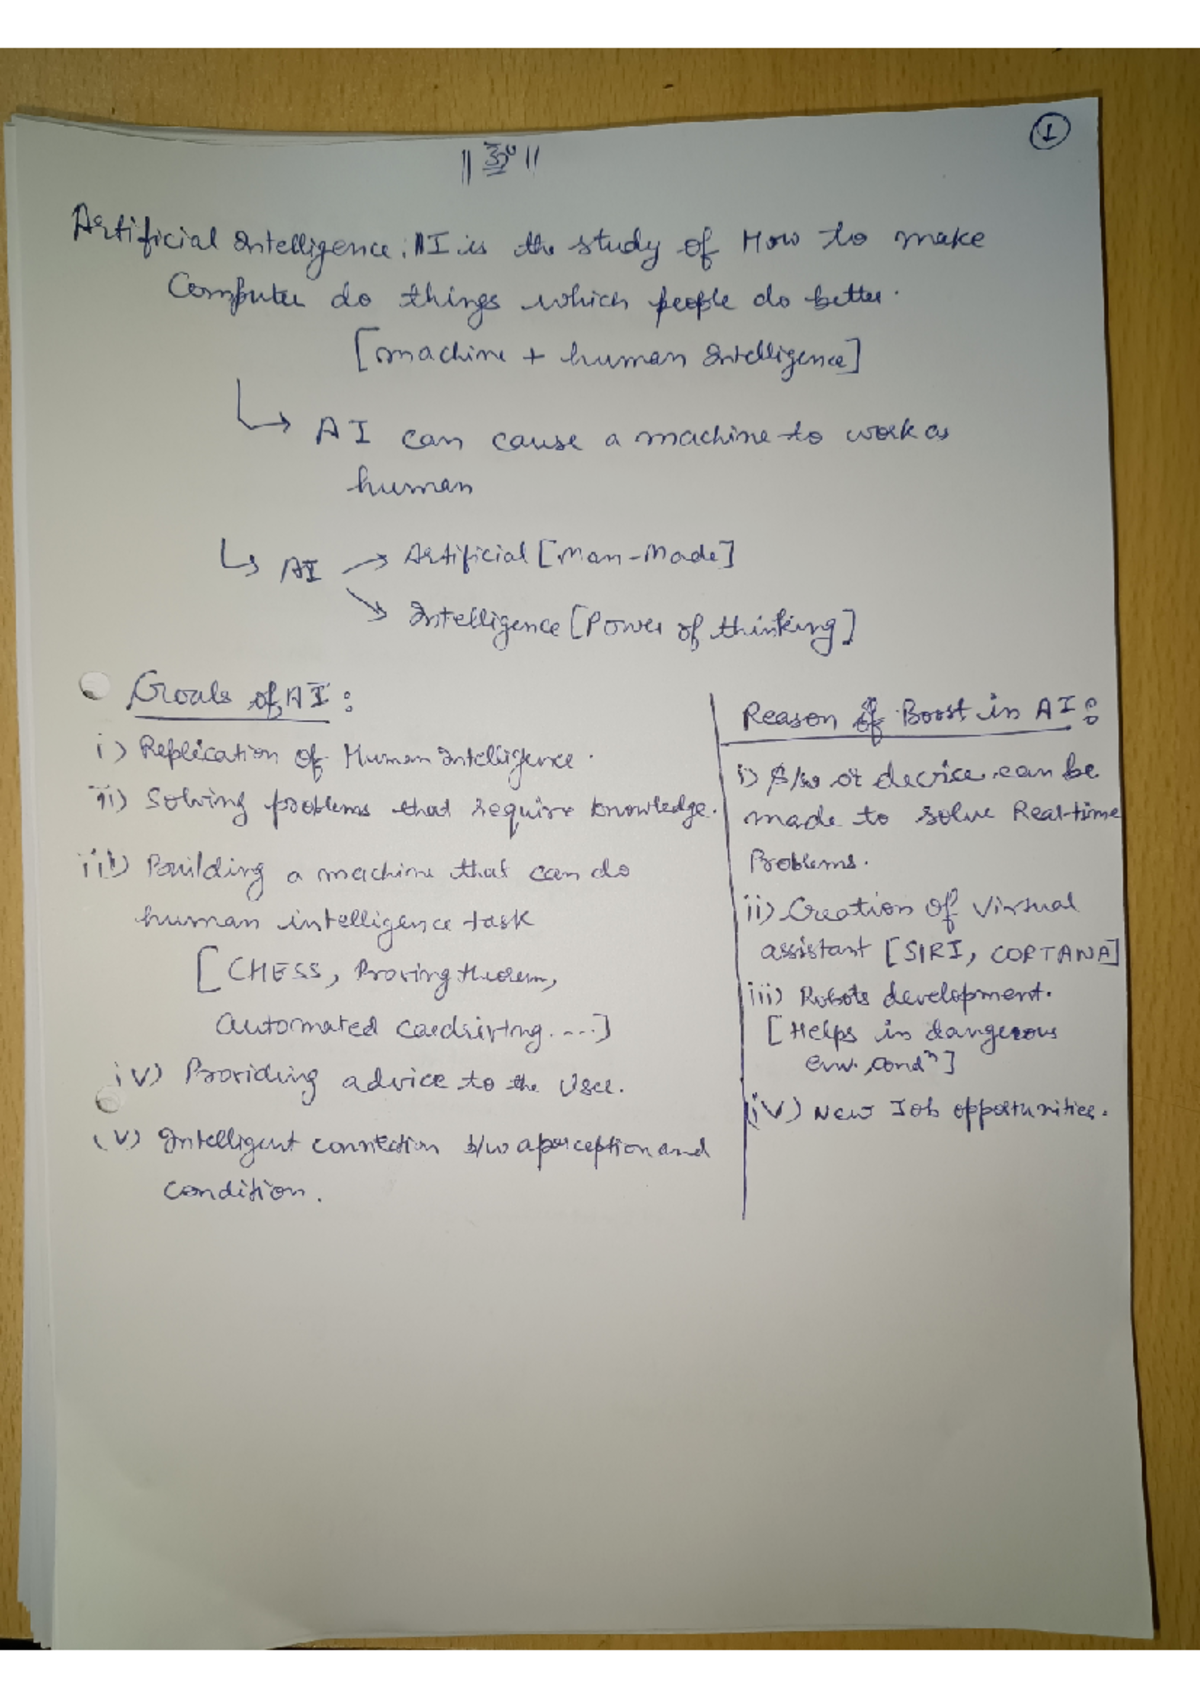 1
|| ॐ ||
Artificial Intelligence: AI is the study of How to make
Computer do things which people do better.
[machine + human Intelligence]
↳ AI can cause a machine to work as
human
↳ AI → Artificial [Man-Made]
↘ Intelligence [Power of thinking]
Goals of AI:
i) Replication of Human Intelligence.
ii) Solving problems that require knowledge.
iii) Building a machine that can do
human intelligence task
[CHESS, Proving theorem,
Automated cardriving....]
iv) Providing advice to the User.
(v) Intelligent connection b/w a perception and
condition.
Reason of Boost in AI:
i) S/w or device can be
made to solve Real-time
Problems.
ii) Creation of Virtual
assistant [SIRI, CORTANA]
iii) Robots development.
[Helps in dangerous
env. condⁿ]
iv) New Job opportunities.